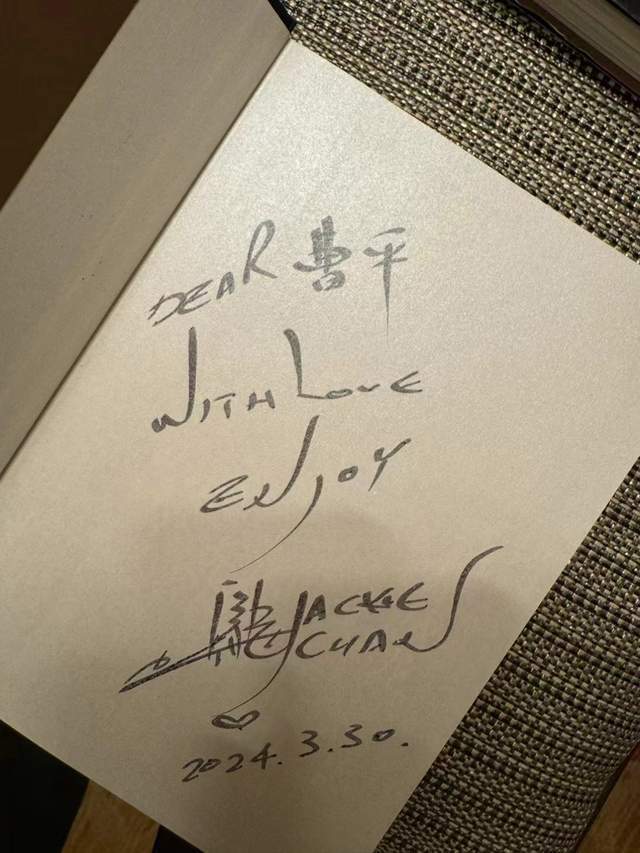 DEAR 曹平
WITH LOVE
ENJOY
成龍 JACKIE
CHAN
2024.3.30.